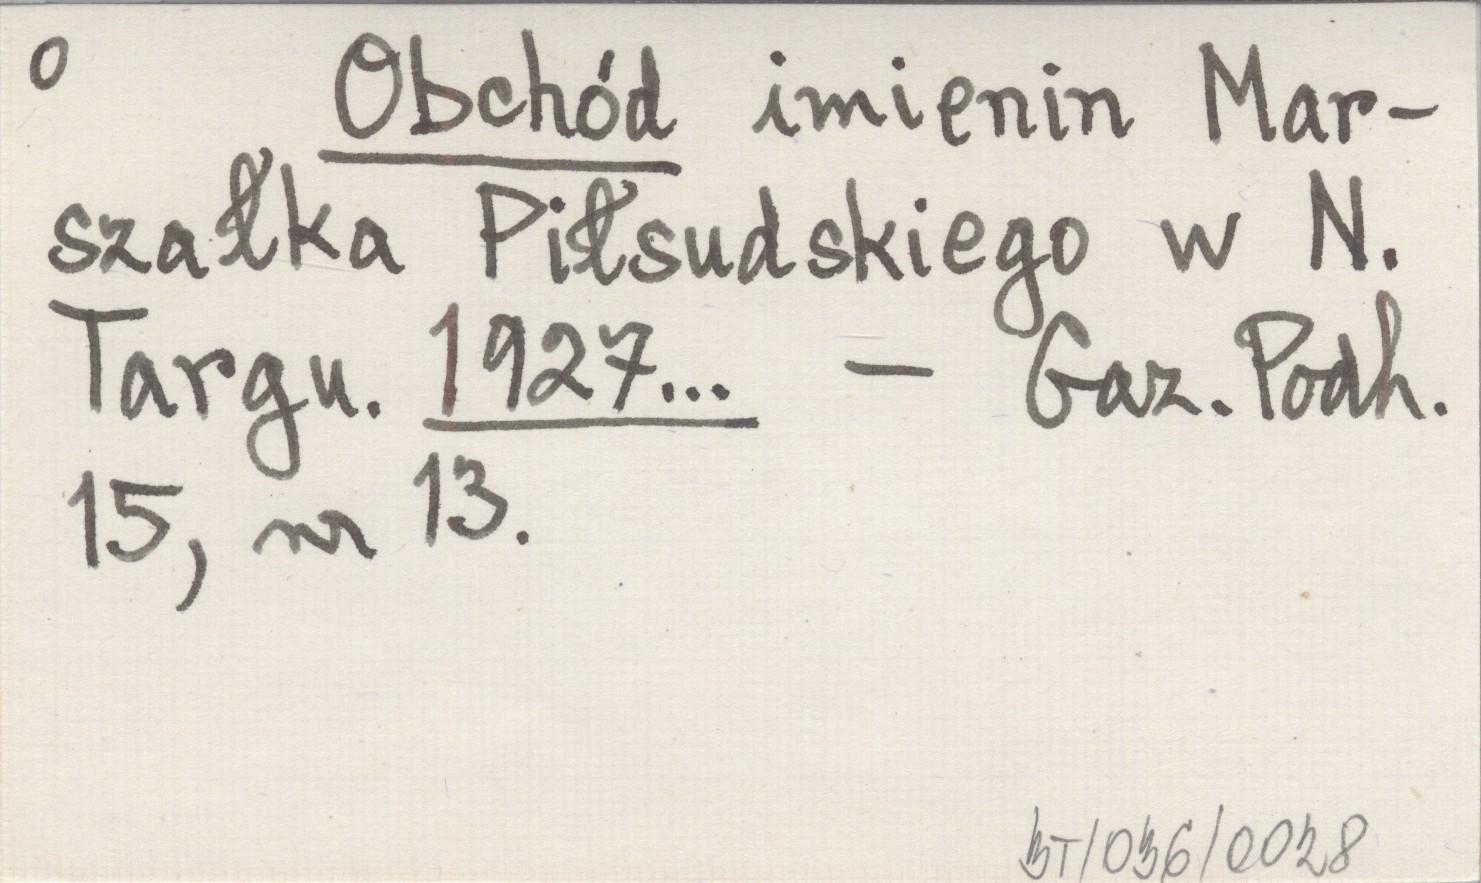 o Obchód imienin Mar-
szałka Piłsudskiego w N.
Targu. 1927... — Gaz. Podh.
15, nr 13.
BT/036/0028